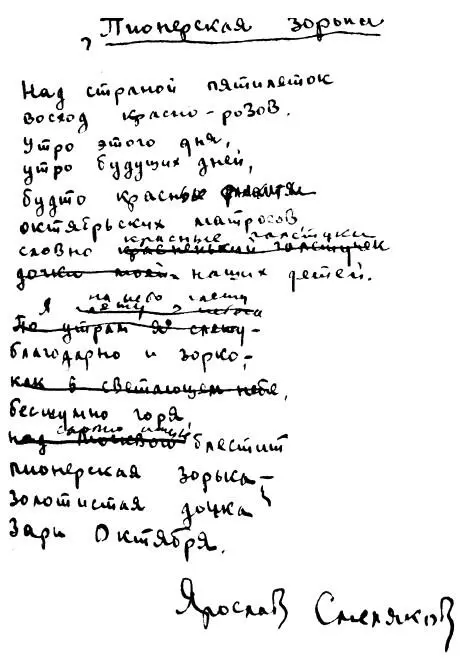 "Пионерская зорька"
Над страной пятилеток
восход красно-розов.
Утро этого дня,
утро будущих дней,
будто красные
октябрьских матросов
красные галстуки
словно краененький галстучек
дочки моей наших детей.
на небо гляжу
Я
По утрам я слежу-
благодарно и зорко,-
как в светающем небе,
бесшумно горя
над Москвою блестит
пионерская зорька-
золотистая дочка
Зари Октября.
Ярослав Смеляков